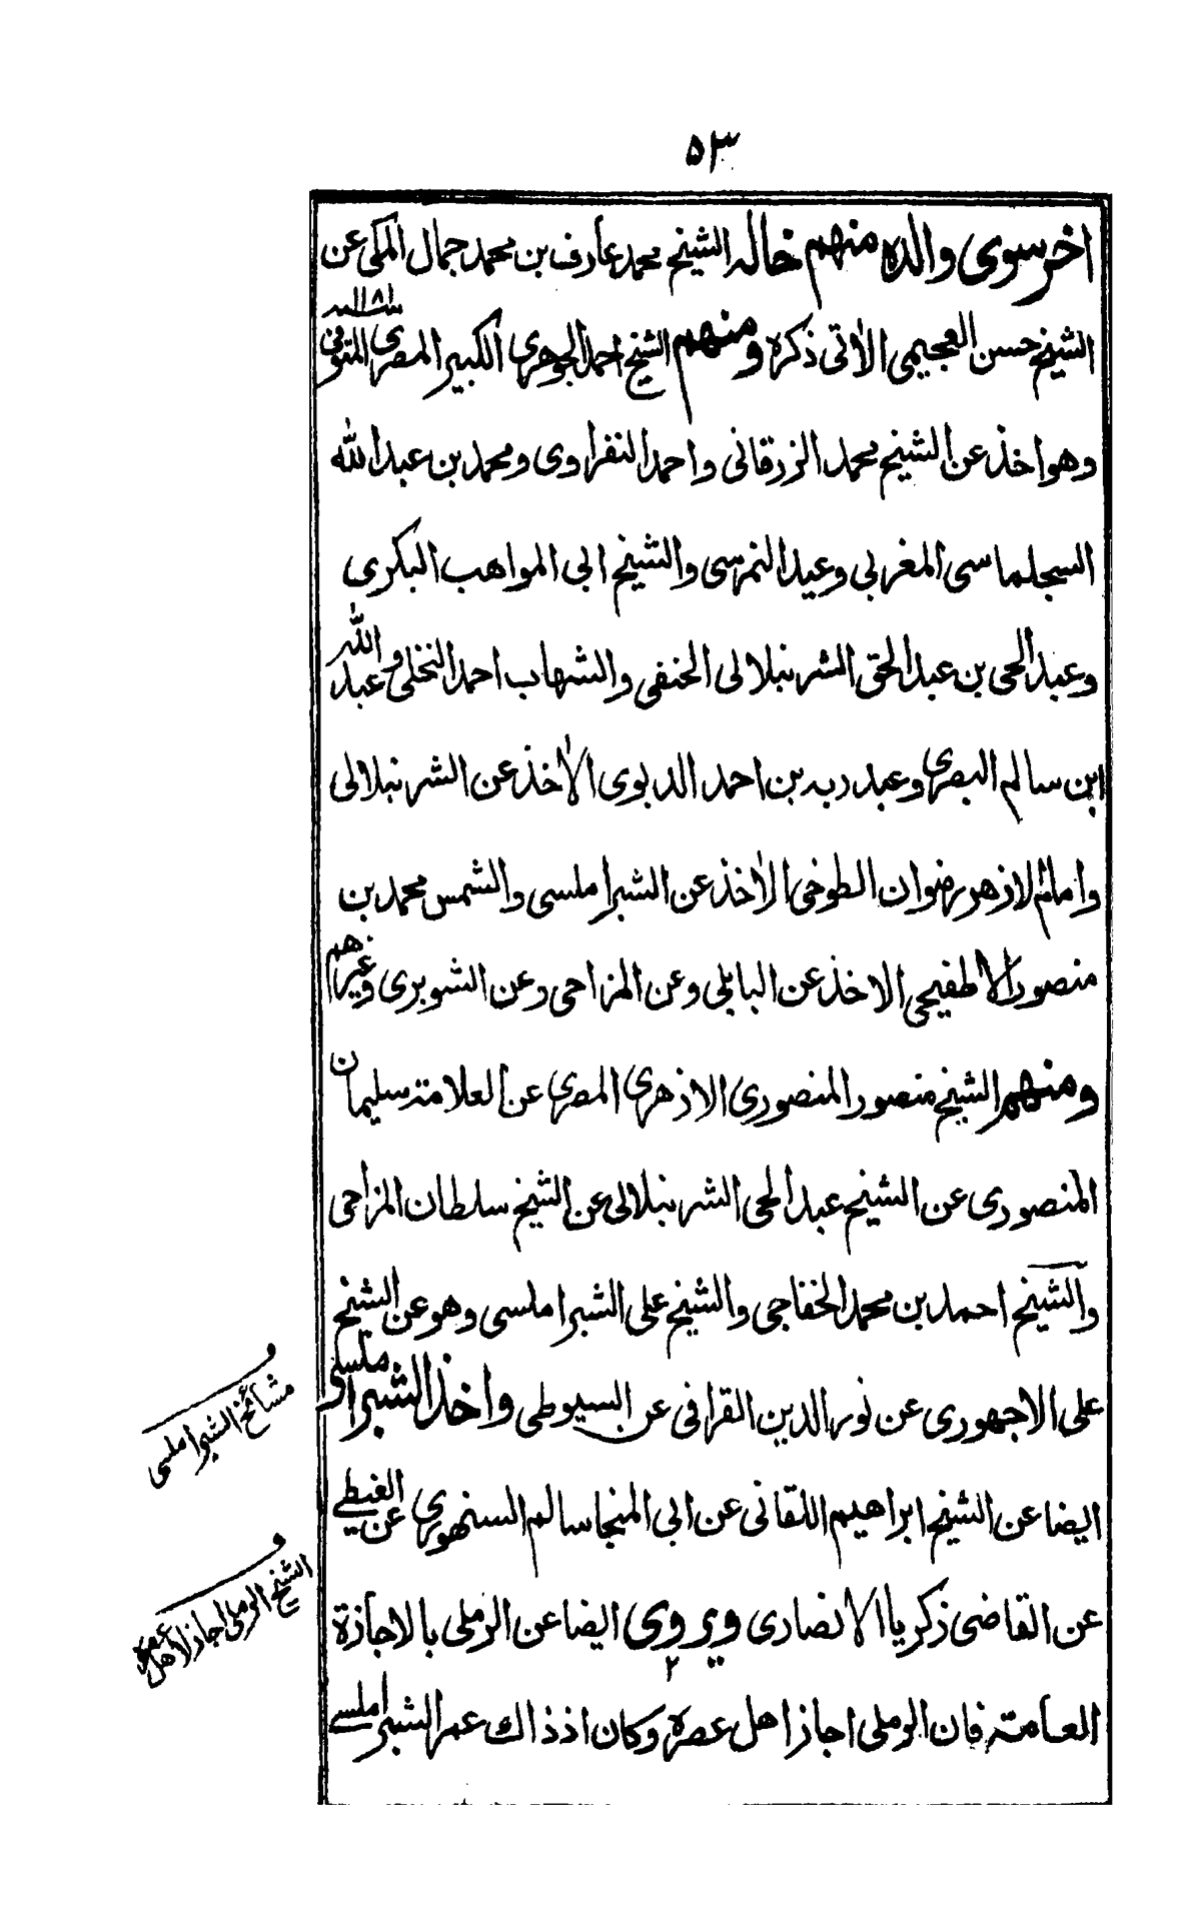 ۵۳
اخر سوى والده منهم خاله الشيخ محمد عارف بن محمد جمال المكى عن
الشيخ حسن العجيمى الاتى ذكره ومنهم الشيخ احمد الجوهرى الكبير المصرى المتوفى
وهو اخذ عن الشيخ محمد الزرقانى واحمد النفراوى ومحمد بن عبد الله
السجلماسى المغربى وعيد النمرسى والشيخ ابى المواهب البكرى
وعبد الحى بن عبد الحق الشرنبلالى الحنفى والشهاب احمد النخلى وعبد الله
ابن سالم البصرى وعبد ربه بن احمد الديوى الاخذ عن الشرنبلالى
وامام الازهر رضوان الطوخى الاخذ عن الشبراملسى والشمس محمد بن
منصور الاطفيحى الاخذ عن البابلى وعن المزاحى وعن الشوبرى وغيرهم
ومنهم الشيخ منصور المنصورى الازهرى المصرى عن العلامة سليمان
المنصورى عن الشيخ عبد الحى الشرنبلالى عن الشيخ سلطان المزاحى
والشيخ احمد بن محمد الخفاجى والشيخ على الشبراملسى وهو عن الشيخ
على الاجهورى عن نور الدين القرافى عن السيوطى واخذ الشبراملسى
ايضا عن الشيخ ابراهيم اللقانى عن ابى المنجا سالم السنهورى عن الغيطى
عن القاضى ذكريا الانصارى ويروى ايضا عن الرملى بالاجازة
العامة فان الرملى اجاز اهل عصره وكان اذ ذاك عمر الشبراملسى
مشائخ الشبراملسى
الشيخ الرملى اجاز لاهل عصره